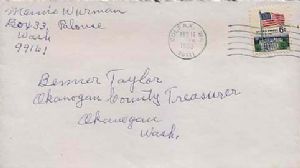 Mannie Wurman
Box 33, Palouse
Wash
99161
COLFAX
Besmer Taylor
Okanogan County Treasurer
Okanogan
Wash.